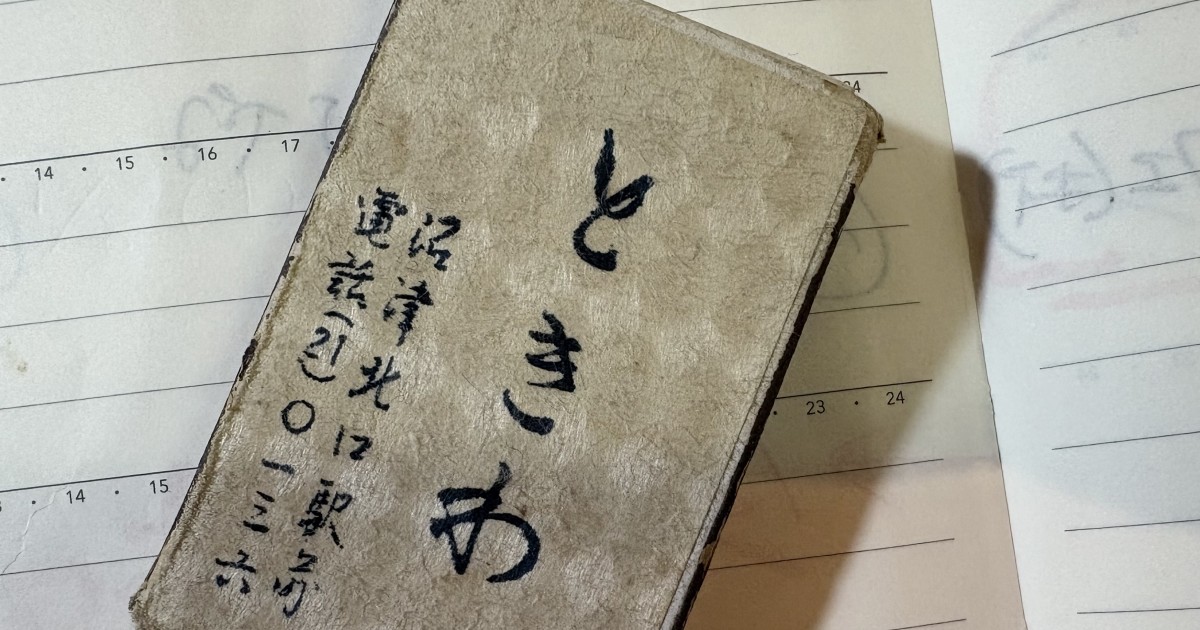 ときわ
沼津北口駅前
電話(21)〇一三六
14 15 16 17
14 15
23 24
24